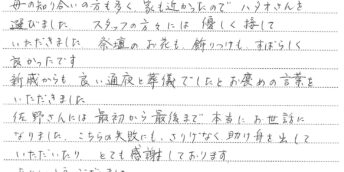 母の知り合いの方も多く、家も近かったので ハタオさんを
選びました スタッフの方々には 優しく接して
いただきました 祭壇のお花も、飾りつけも、すばらしく
良かったです
親戚からも 良い通夜と葬儀でしたとお褒めの言葉を
いただきました
佐野さんには最初から最後まで 本当にお世話に
なりました。こちらの失敗にも、さりげなく助け舟を出して
いただいたり とても感謝しております。